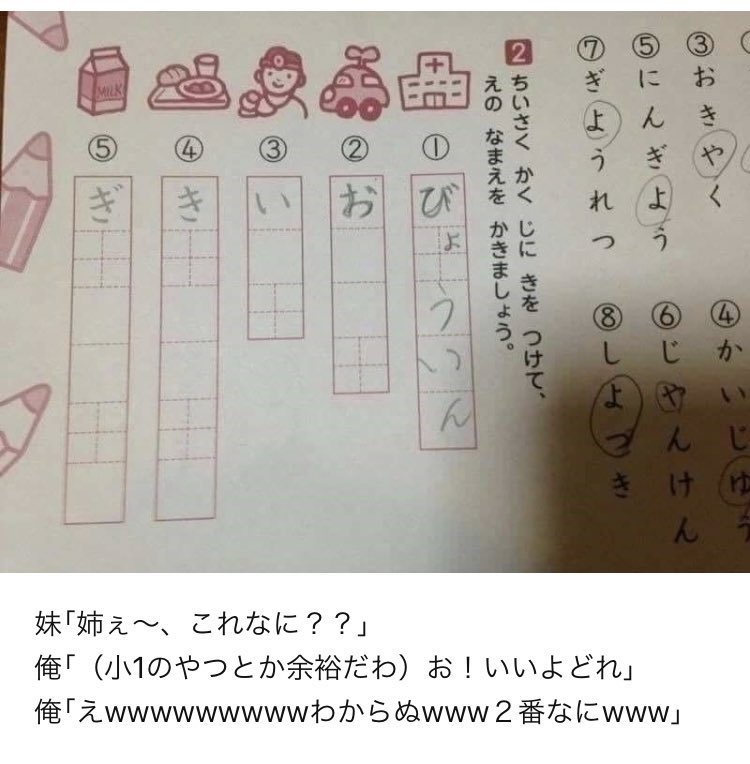 ③おきやく
⑤にんぎよう
⑦ぎようれつ
④かいじゆう
⑥じやんけん
⑧しよつき
2 ちいさく かく じに きを つけて、
えの なまえを かきましょう。
①びょういん
②お
③い
④き
MILK
⑤ぎ
妹「姉ぇ〜、これなに？？」
俺「（小1のやつとか余裕だわ）お！いいよどれ」
俺「えwwwwwwwwwわからぬwww２番なにwww」